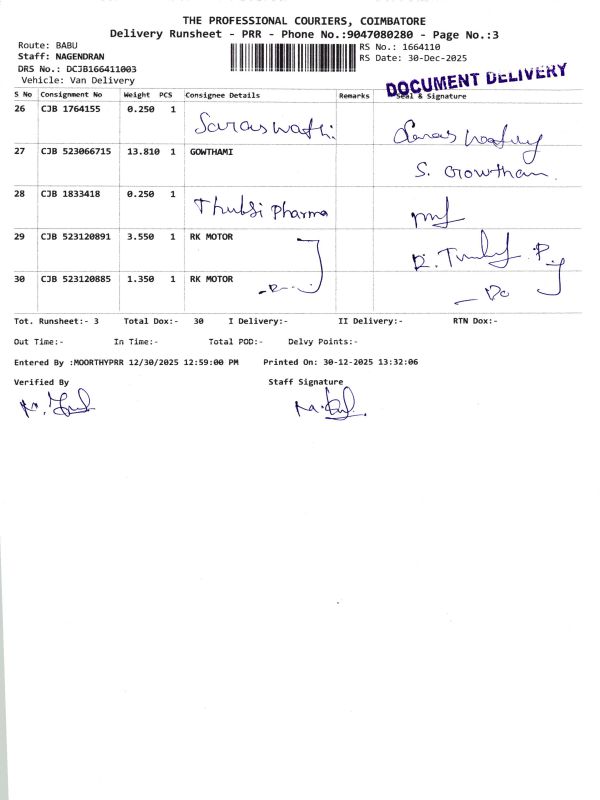 THE PROFESSIONAL COURIERS, COIMBATORE
Delivery Runsheet - PRR - Phone No.:9047080280 - Page No.:3
Route: BABU
RS No.: 1664110
Staff: NAGENDRAN
RS Date: 30-Dec-2025
DRS No.: DCJB166411003
Vehicle: Van Delivery
DOCUMENT DELIVERY
S No Consignment No Weight PCS Consignee Details Remarks Seal & Signature
26 CJB 1764155 0.250 1 Saraswathi
27 CJB 523066715 13.810 1 GOWTHAMI S. Gowtham
28 CJB 1833418 0.250 1 Thulsi Pharma
29 CJB 523120891 3.550 1 RK MOTOR
30 CJB 523120885 1.350 1 RK MOTOR
Tot. Runsheet:- 3 Total Dox:- 30 I Delivery:- II Delivery:- RTN Dox:-
Out Time:- In Time:- Total POD:- Delvy Points:-
Entered By :MOORTHYPRR 12/30/2025 12:59:00 PM Printed On: 30-12-2025 13:32:06
Verified By Staff Signature